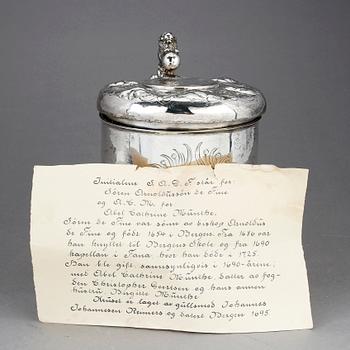 Initialene S. A. D. F. står for:
Sören Arnoldssön de Fine
og A. C. M. for
Abel Cathrine Munthe.
Sören de Fine var sönn av biskop Arnoldus
de Fine og född 1654 i Bergen. Fra 1686 var
han knyttet til Bergens Skole og fra 1690
kapellan i Fana hvor han döde i 1725.
Han ble gift, sannsynligvis i 1690-årene,
med Abel Cathrine Munthe, datter av fog-
den Christopher Gerstsen og hans annen
hustru Birgitte Munthe
Kruset er laget av gullsmed Johannes
Johannessen Reimers og datert Bergen 1695.